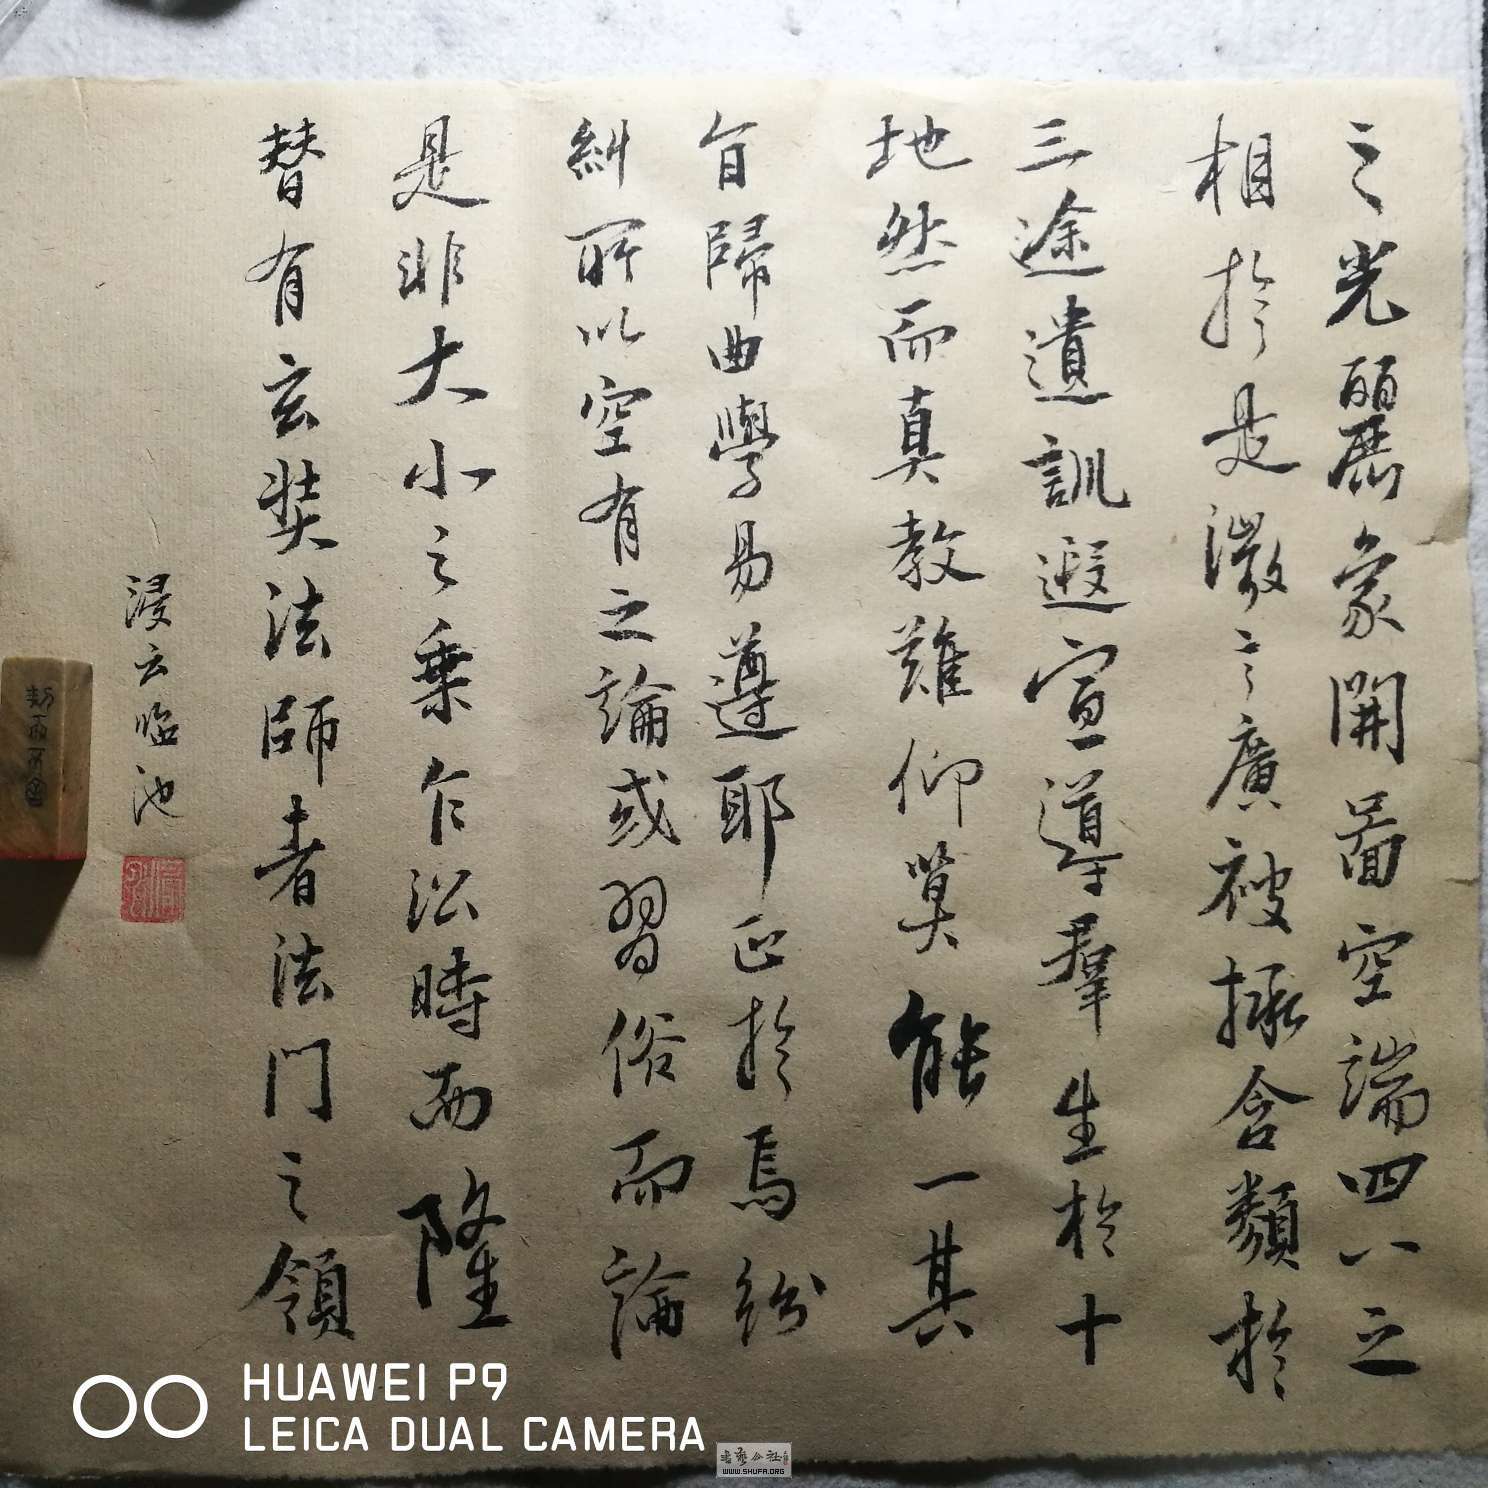 之光麗象開圖空端四八之
相於是微言廣被拯含類於
三途遺訓遐宣導群生於十
地然而真教難仰莫能一其
旨歸曲學易遵耶正於焉紛
糾所以空有之論或習俗而論
是非大小之乘乍沿時而隆
替有玄奘法師者法門之領
浸云临池
HUAWEI P9
LEICA DUAL CAMERA
书艺公社
WWW.SHUFA.ORG